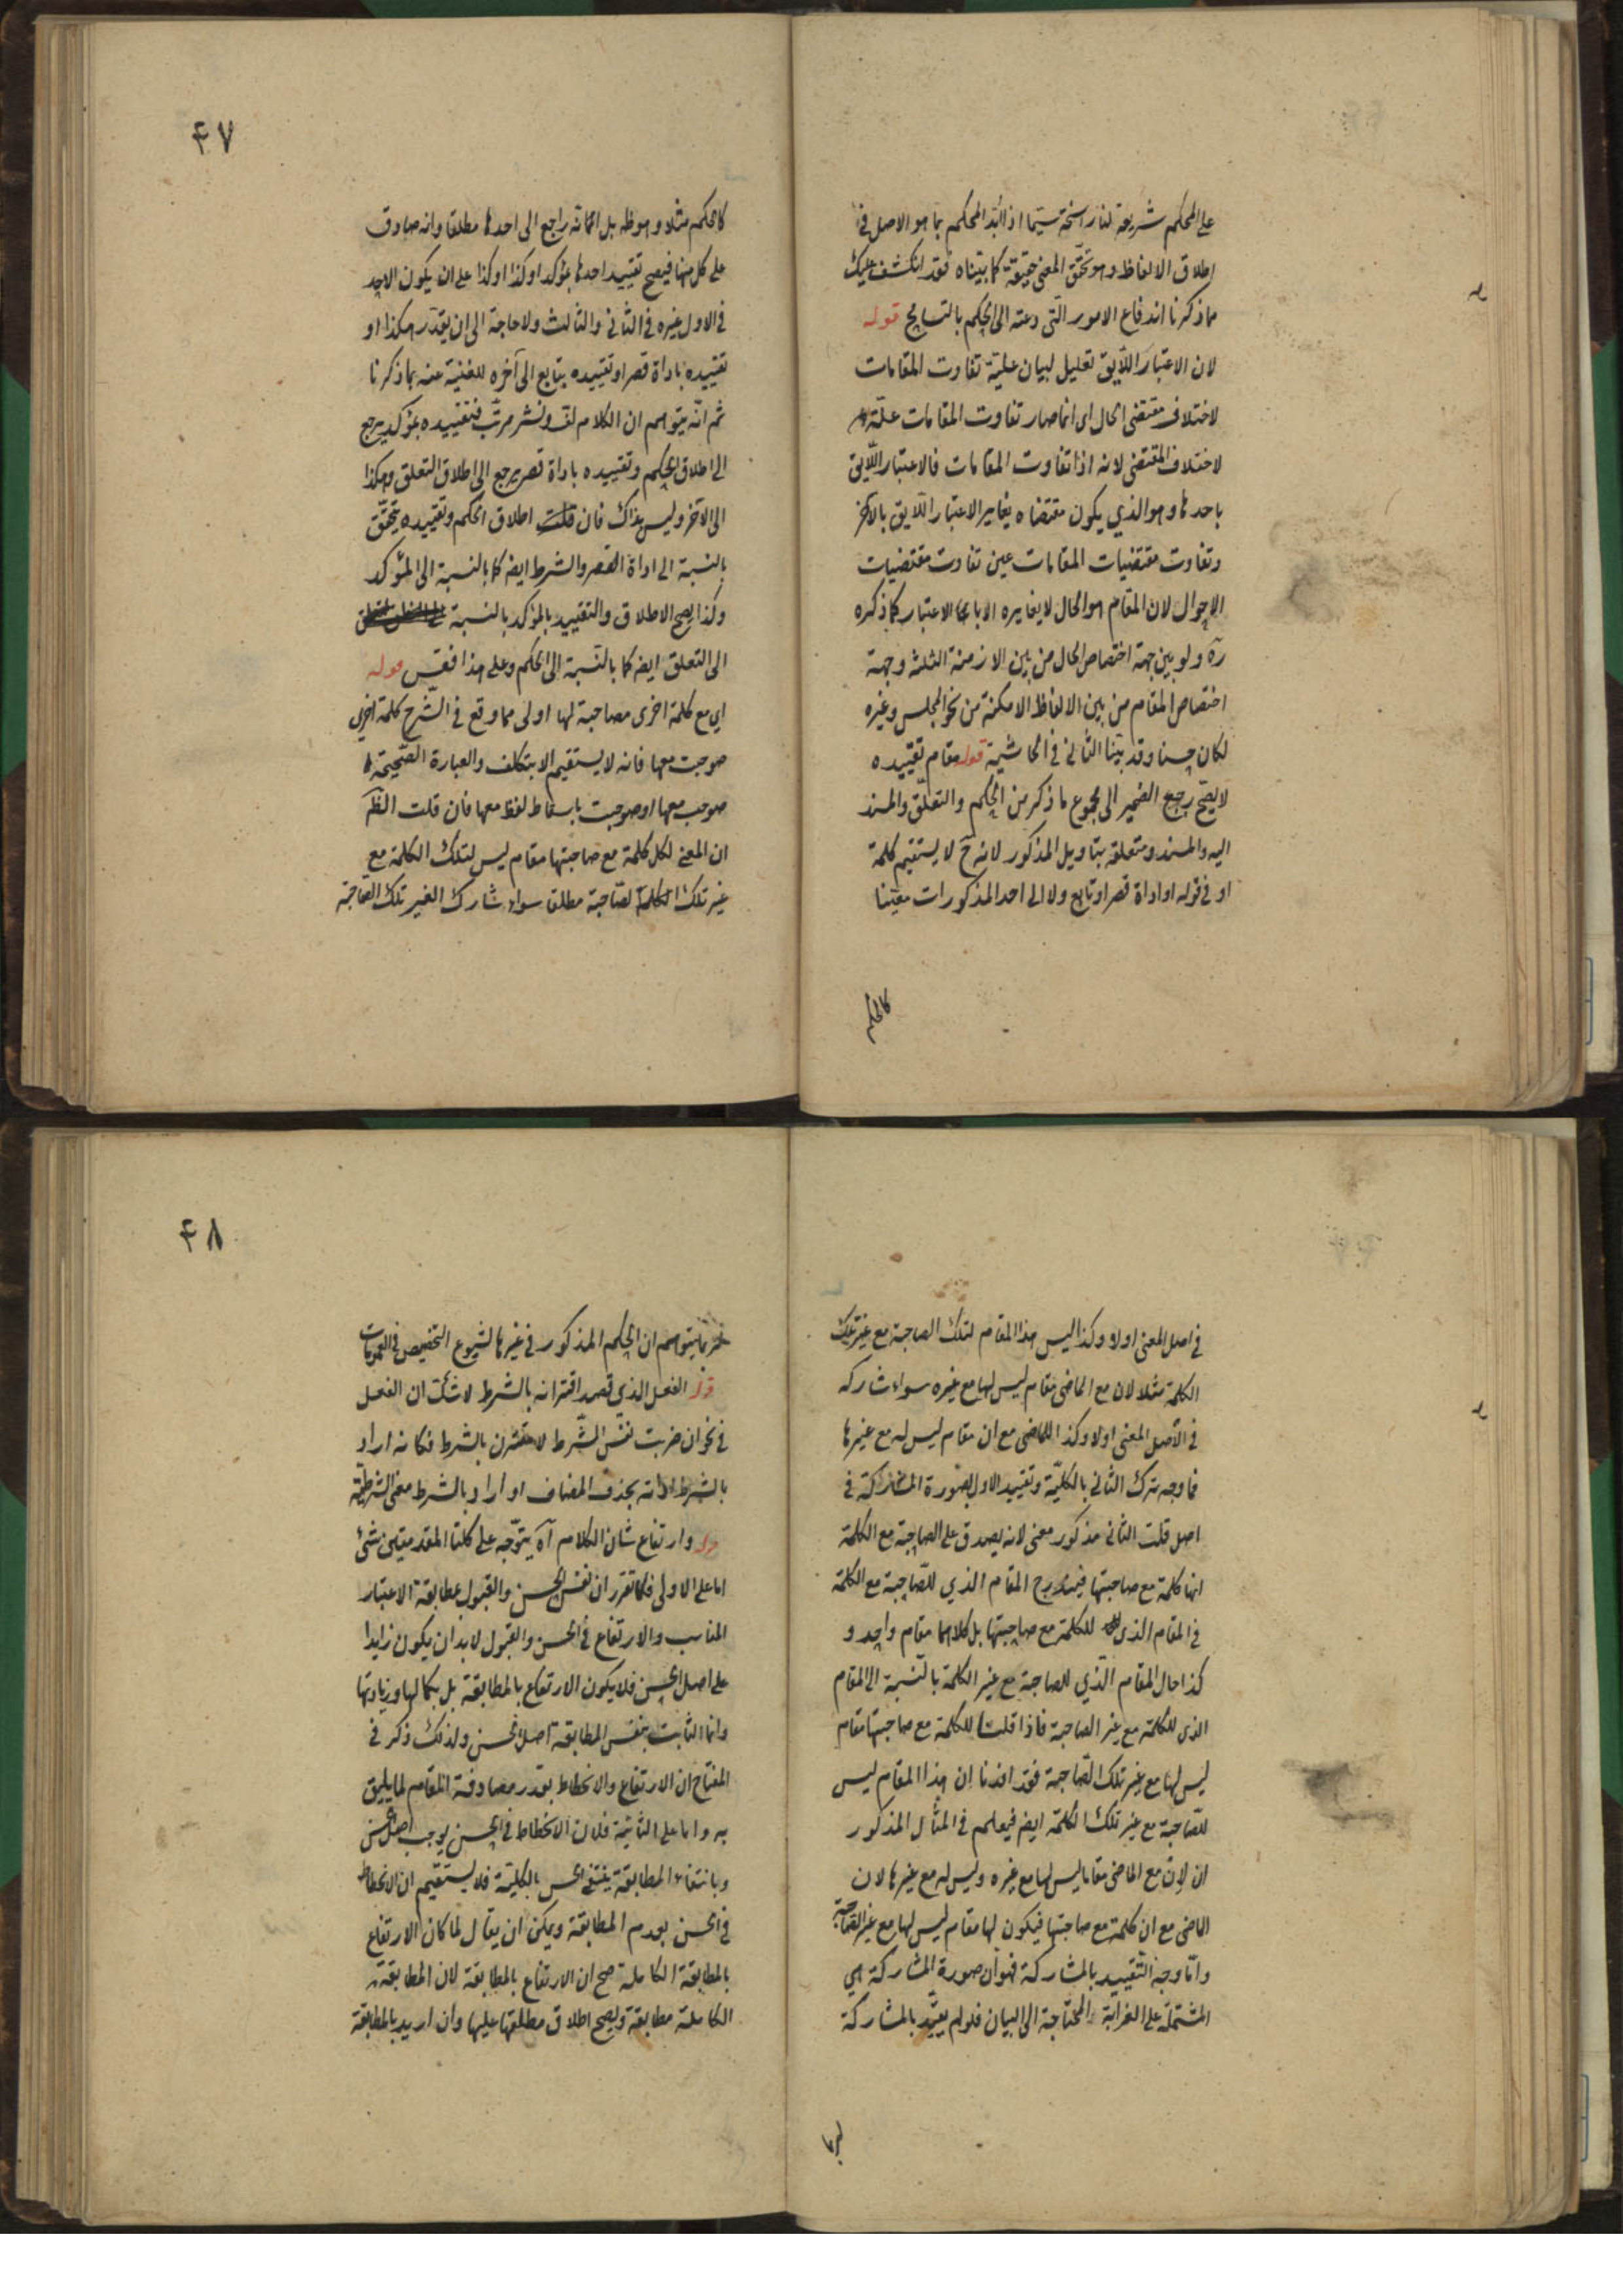 على المحكم شريعة لنا راسخة سيما اذ الُبّد المحكم بما هو الاصل في
اطلاق الالفاظ وهو تحقّق المعنى حقيقة كما بيّناه فقد انكشف عليك
مما ذكرنا اندفاع الامور الّتى دعته الى الحكم بالتسامح قوله
لان الاعتبار اللّايق تعليل لبيان علية تفاوت المقامات
لاختلاف مقتضى الحال اى انما صار تفاوت المقامات علّة
لاختلاف المقتضى لانه اذا تفاوت المقامات فالاعتبار اللّايق
باحدها وهو الذي يكون مقتضاه يغاير الاعتبار اللّايق بالآخر
وتفاوت مقتضيات المقامات عين تفاوت مقتضيات
الاحوال لان المقام هو الحال لا يغايره الا بالاعتبار كما ذكره
ره ولو بين جهة اختصاص الحال من بين الازمنة الثلثة وجهة
اختصاص المقام من بين الالفاظ الامكنة من نحو المجلس وغيره
لكان حسنا وقد بيّنا الثاني في الحاشية قوله مقام تقييده
لا يصحّ رجع الضمير الى مجموع ما ذكر من الحكم والتعلّق والمسند
اليه والمسند ومتعلقه بتاويل المذكور لانه ح لا يستقيم كلمة
او في قوله او اداة قصر او تابع ولا الى احد المذكورات معيّنا
كالحكم
٤٧
كالحكم مثلا وهو ظه بل انما انه راجع الى احدها مطلقا وانه صادق
على كل منها فيصح تقييد احدها بمؤكد او كذا او كذا على ان يكون الاحد
في الاول غيره في الثاني والثالث ولا حاجة الى ان يقدّر هكذا او
تقييده باداة قصر او تقييده بتابع الى آخره للغنية عنه بما ذكرنا
ثم انّه يتوهم ان الكلام لف ونشر مرتّب فتقييده بمؤكد يرجع
الى اطلاق الحكم وتقييده باداة قصر يرجع الى اطلاق التعلق وهكذا
الى الآخر وليس بذاك فان قلت اطلاق الحكم وتقييده يتحقّق
بالنسبة الى اداة القصر والشرط ايضا كما بالنسبة الى المؤكد
وكذا يصح الاطلاق والتقييد بالمؤكد بالنسبة
الى التعلق ايضا كما بالنّسبة الى الحكم وعلى هذا فقس قوله
اي مع كلمة اخرى مصاحبة لها اولى مما وقع في الشّرح كلمة اخرى
صوحبت معها فانه لا يستقيم الا بتكلف والعبارة الصّحيحة
صوحب معها او صوحبت باسقاط لفظ معها فان قلت الظّ
ان المعنى لكل كلمة مع صاحبتها مقام ليس لتلك الكلمة مع
غير تلك الكلمة الصّاحبة مطلقا سواء شارك الغير تلك الصّاحبة
في اصل المعنى اولا وكذا ليس هذا المقام لتلك الصاحبة مع غير تلك
الكلمة مثلا لان مع الماضي مقام ليس لها مع غيره سواء شاركه
في الاصل المعنى اولا وكذا للماضى مع ان مقام ليس له مع غيرها
فما وجه ترك الثاني بالكليّة وتقييد الاول بصورة المشاركة في
اصل قلت الثاني مذكور معنى لانه يصدق على الصاحبة مع الكلمة
انها كلمة مع صاحبتها فيندرج المقام الذي للصّاحبة مع الكلمة
في المقام الذي للكلمة مع صاحبتها بل كلاهما مقام واحد و
كذا حال المقام الّذي للصاحبة مع غير الكلمة بالنّسبة الى المقام
الذى للكلمة مع غير الصاحبة فاذا قلت للكلمة مع صاحبتها مقام
ليس لها مع غير تلك الصّاحبة فقد افدنا ان هذا المقام ليس
للصّاحبة مع غير تلك الكلمة ايضا فيعلم في المثال المذكور
ان لِان مع الماضى مقاما ليس لها مع غيره وليس له مع غيرها لان
الماضى مع ان كلمة مع صاحبتها فيكون لها مقام ليس لها مع غير الصّاحبة
وامّا وجه التّقييد بالمشاركة فهو ان صورة المشاركة هي
المشتملة على الغرابة والمحتاجة الى البيان فلو لم يقيّد بالمشاركة
لربما
٤٨
لربما يتوهم ان الحكم المذكور في غيرها لشيوع التخصيص في العمومات
قوله الفعل الذي قصد اقترانه بالشرط لا شك ان الفعل
في نحو ان ضربت نفس الشّرط لا مقترن بالشرط فكانه اراد
بالشرط اداته بحذف المضاف او اراد بالشرط معنى الشرطيّة
قوله وارتفاع شان الكلام آه يتوّجه على كلتا المقدمتين شئ
اما على الاولى فلما تقرر ان نفس الحسن والقبول بمطابقة الاعتبار
المناسب والارتفاع في الحسن والقبول لا بد ان يكون زايدا
على اصل الحسن فلا يكون الارتفاع بالمطابقة بل بكمالها وزيادتها
وانما الثابت بنفس المطابقة اصل الحسن ولذلك ذكر في
المفتاح ان الارتفاع والانحطاط بقدر مصادفة المقام لما يليق
به واما على الثانية فلان الانحطاط في الحسن يوجب اصل الحسن
وبانتفاء المطابقة ينتفي الحسن بالكليّة فلا يستقيم ان الانحطاط
في الحسن بعدم المطابقة ويمكن ان يقال لما كان الارتفاع
بالمطابقة الكاملة صح ان الارتفاع بالمطابقة لان المطابقة
الكاملة مطابقة ويصح اطلاق مطلقها عليها وان اريد بالمطابقة